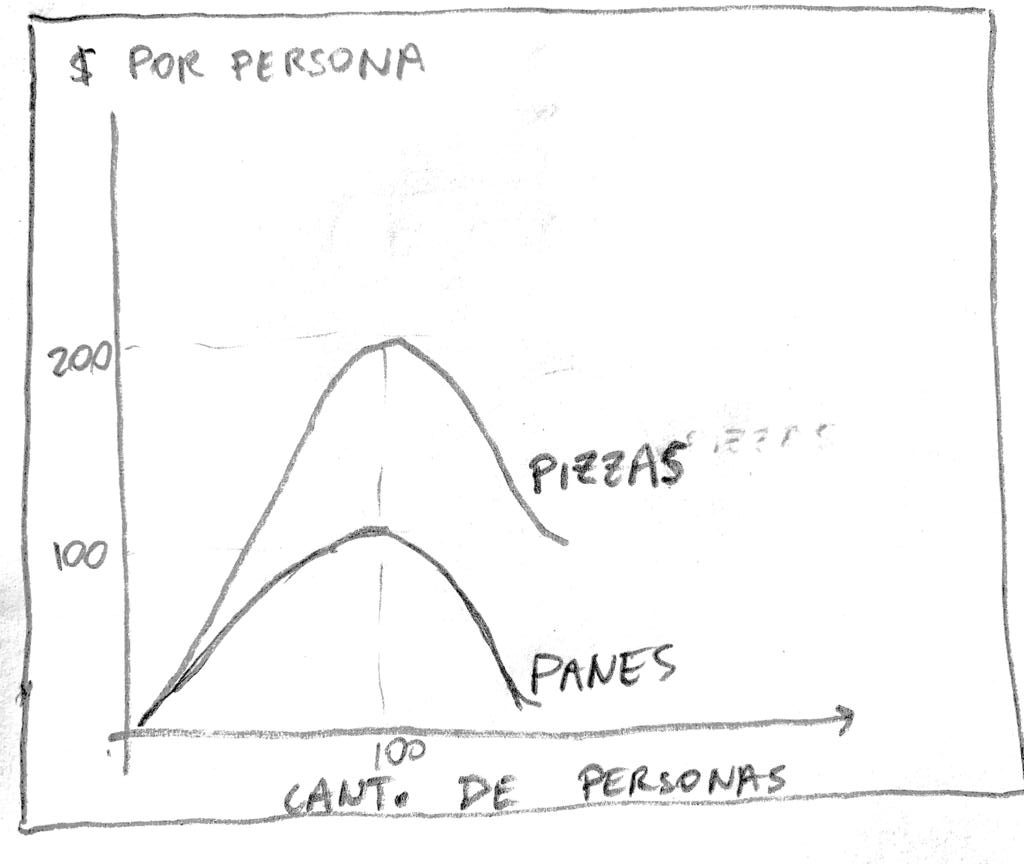 $ POR PERSONA
200
PIZZAS
100
PANES
100
CANT. DE PERSONAS